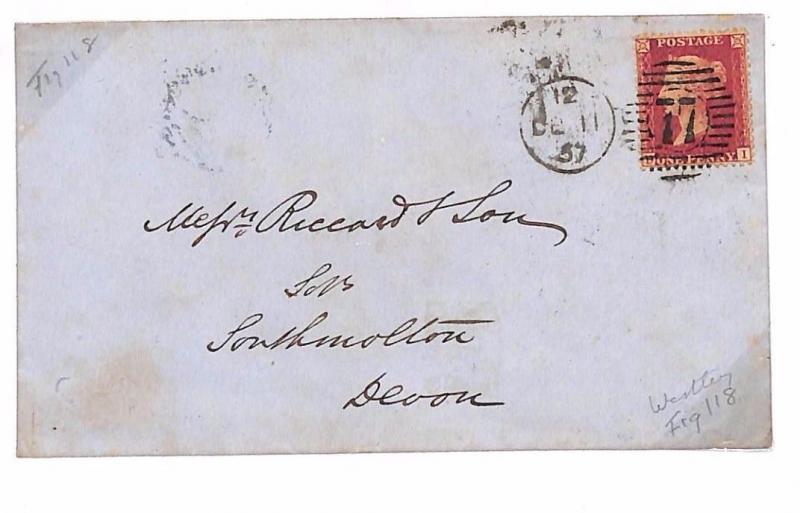 Frg 118
POSTAGE
12
DE 11
57
77
ONE PENNY I
Messrs Riccard & Son
Solrs
Southmolton
Devon
Westley
Frg 118